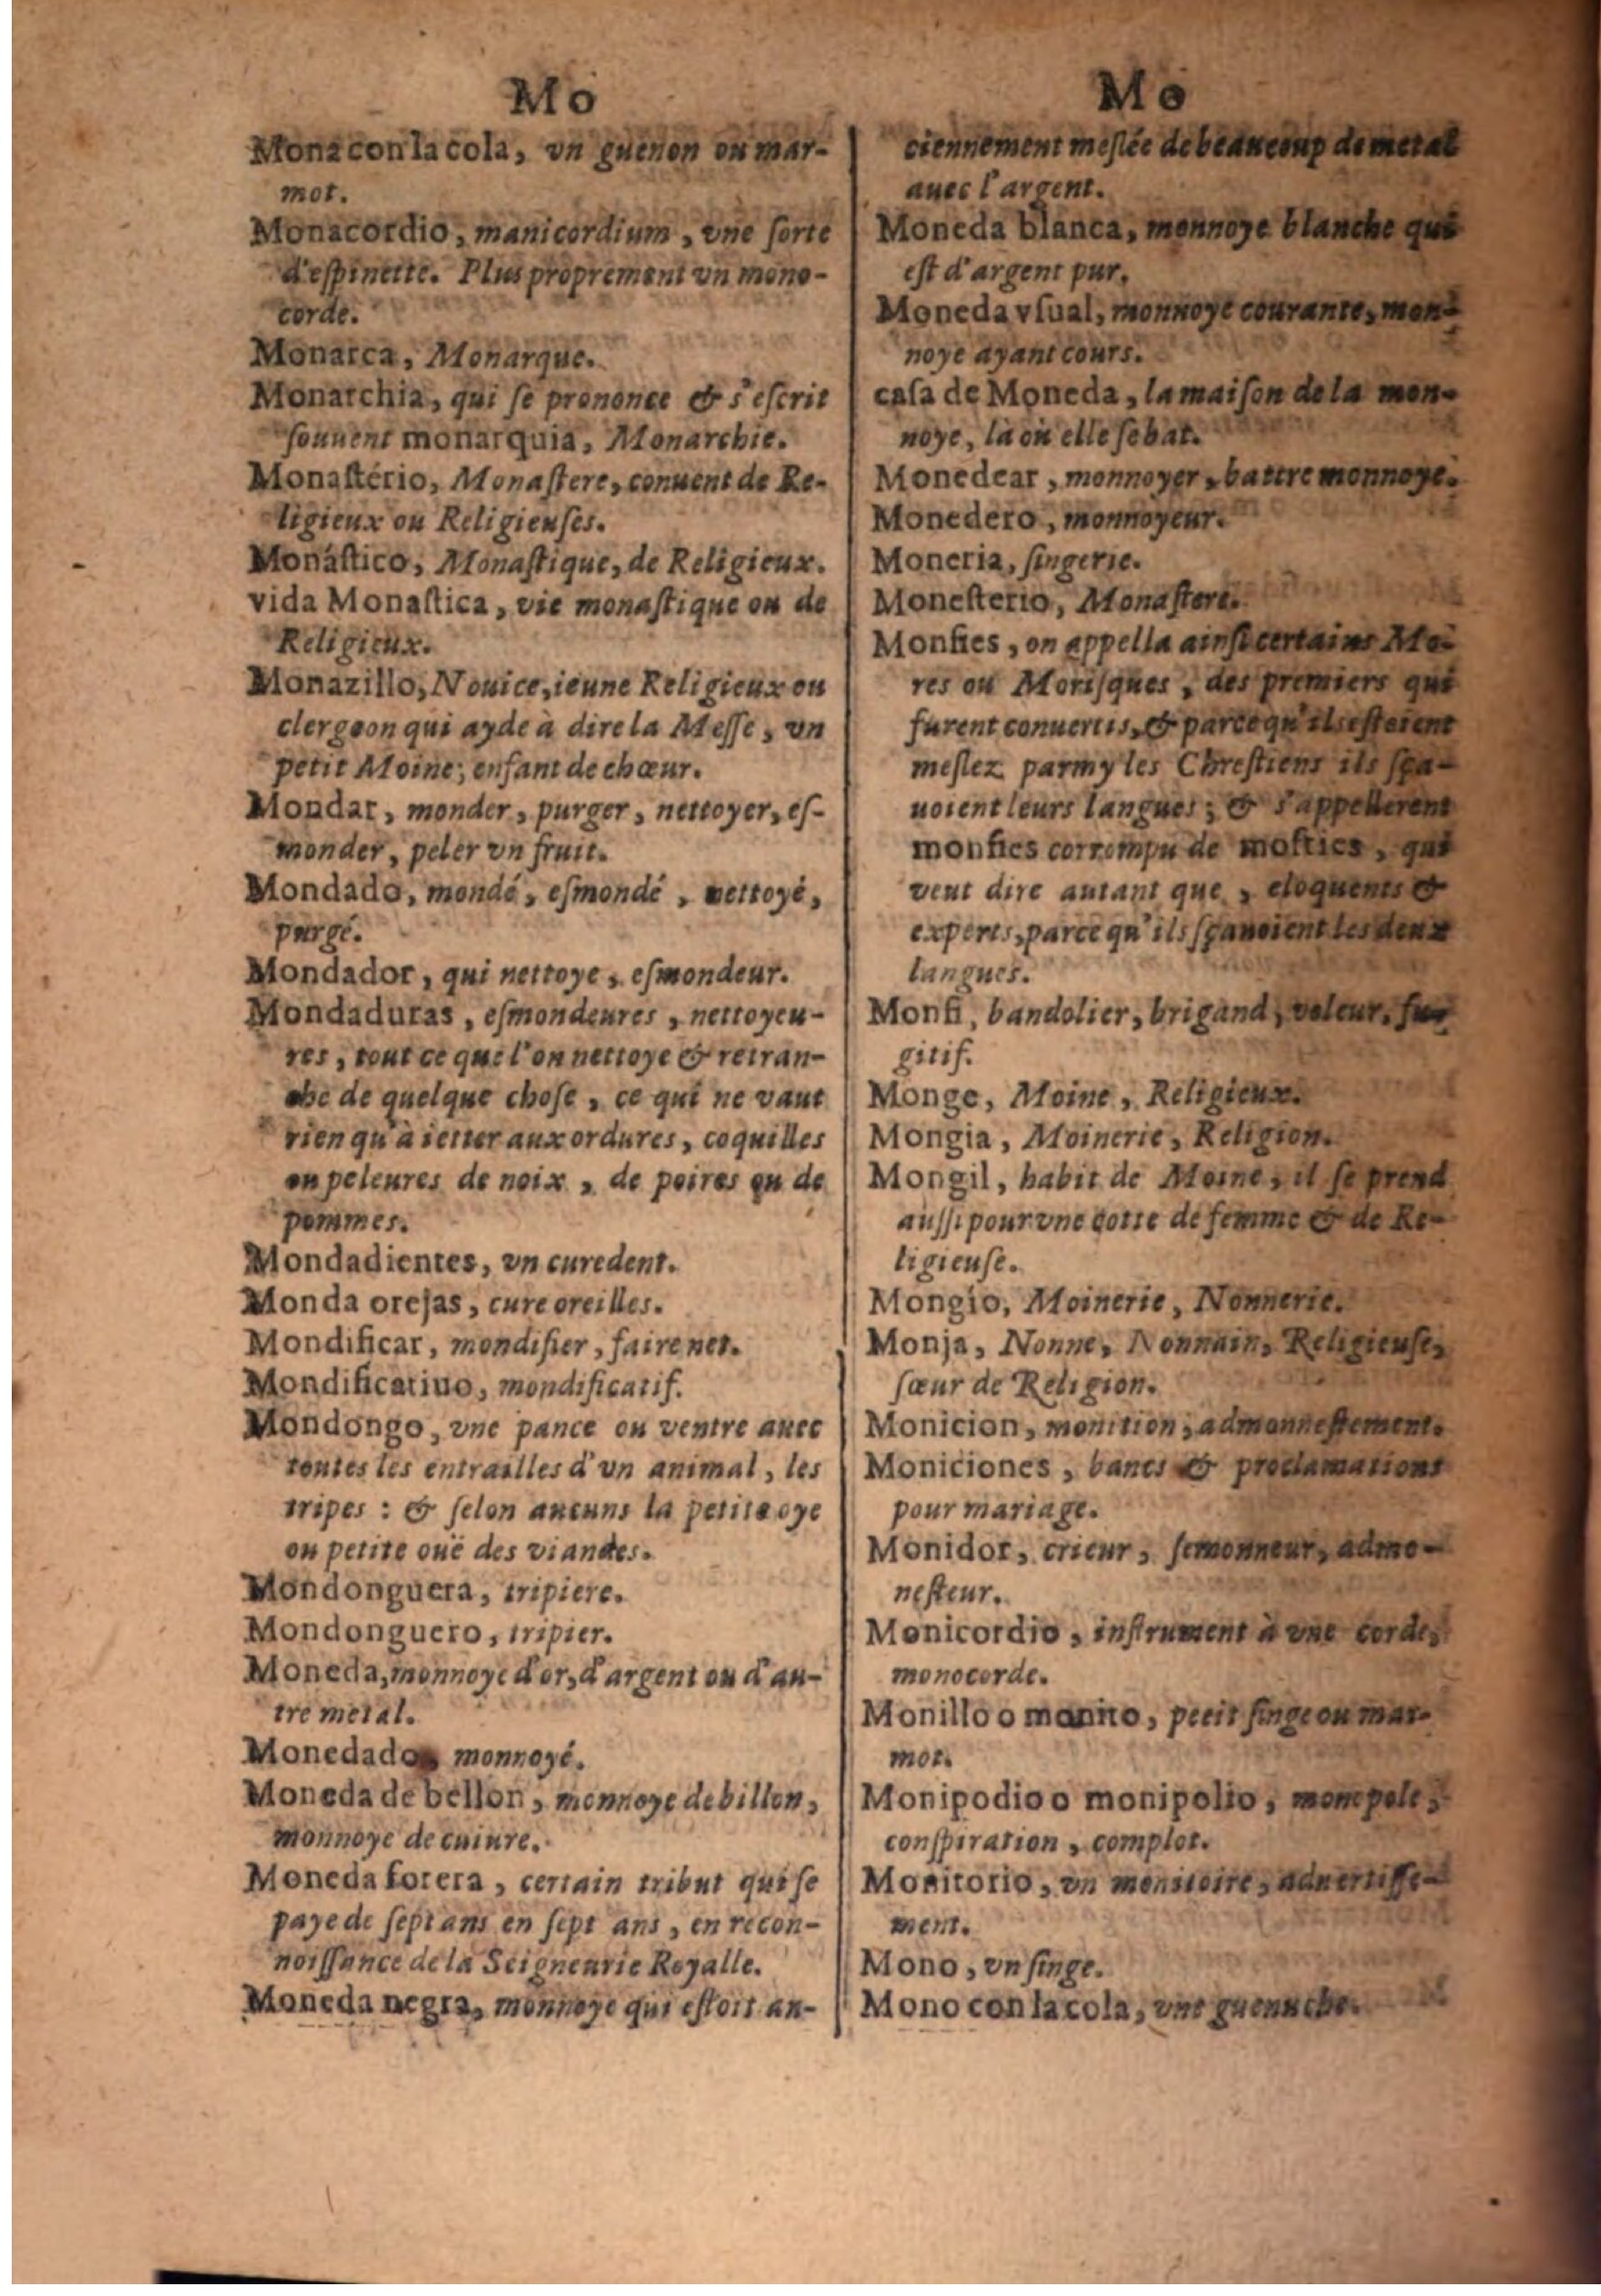 Mo
Mona con la cola, vn guenon ou mar-
mot.
Monacordio, manicordium, vne ſorte
d'eſpinette. Plus proprement vn mono-
corde.
Monarca, Monarque.
Monarchia, qui ſe prononce & s'eſcrit
ſouuent monarquia, Monarchie.
Monaſtério, Monaſtere, conuent de Re-
ligieux ou Religieuſes.
Monáſtico, Monaſtique, de Religieux.
vida Monaſtica, vie monaſtique ou de
Religieux.
Monazillo, Nouice, ieune Religieux ou
clergeon qui ayde à dire la Meſſe, vn
petit Moine; enfant de chœur.
Mondar, monder, purger, nettoyer, eſ-
monder, peler vn fruit.
Mondado, mondé, eſmondé, nettoyé,
purgé.
Mondador, qui nettoye, eſmondeur.
Mondaduras, eſmondeures, nettoyeu-
res, tout ce que l'on nettoye & retran-
che de quelque choſe, ce qui ne vaut
rien qu'à ietter aux ordures, coquilles
ou peleures de noix, de poires ou de
pommes.
Mondadientes, vn curedent.
Monda orejas, cure oreilles.
Mondificar, mondifier, faire net.
Mondificatiuo, mondificatif.
Mondongo, vne pance ou ventre auec
toutes les entrailles d'vn animal, les
tripes : & ſelon aucuns la petite oye
ou petite ouë des viandes.
Mondonguera, tripiere.
Mondonguero, tripier.
Moneda, monnoye d'or, d'argent ou d'au-
tre metal.
Monedado, monnoyé.
Moneda de bellon, monnoye de billon,
monnoye de cuiure.
Moneda forera, certain tribut qui ſe
paye de ſept ans en ſept ans, en recon-
noiſſance de la Seigneurie Royalle.
Moneda negra, monnoye qui eſtoit an-
Mo
ciennement meſlée de beaucoup de metal
auec l'argent.
Moneda blanca, monnoye blanche qui
eſt d'argent pur.
Moneda vſual, monnoye courante, mon-
noye ayant cours.
caſa de Moneda, la maiſon de la mon-
noye, là où elle ſe bat.
Monedear, monnoyer, battre monnoye.
Monedero, monnoyeur.
Moneria, ſingerie.
Moneſterio, Monaſtere.
Monfies, on appella ainſi certains Mo-
res ou Moriſques, des premiers qui
furent conuertis, & parce qu'ils eſtoient
meſlez parmy les Chreſtiens ils ſça-
uoient leurs langues; & s'appellerent
monfies corrompu de mofties, qui
veut dire autant que, eloquents &
experts, parce qu'ils ſçauoient les deux
langues.
Monfi, bandolier, brigand, voleur, fu-
gitif.
Monge, Moine, Religieux.
Mongia, Moinerie, Religion.
Mongil, habit de Moine, il ſe prend
auſſi pour vne cotte de femme & de Re-
ligieuſe.
Mongio, Moinerie, Nonnerie.
Monja, Nonne, Nonnain, Religieuſe,
ſœur de Religion.
Monicion, monition, admonneſtement.
Moniciones, bancs & proclamations
pour mariage.
Monidor, crieur, ſemonneur, admo-
neſteur.
Monicordio, inſtrument à vne corde,
monocorde.
Monillo o monito, petit ſinge ou mar-
mot.
Monipodio o monipolio, monopole,
conſpiration, complot.
Monitorio, vn monitoire, aduertiſſe-
ment.
Mono, vn ſinge.
Mono con la cola, vne guenuche.